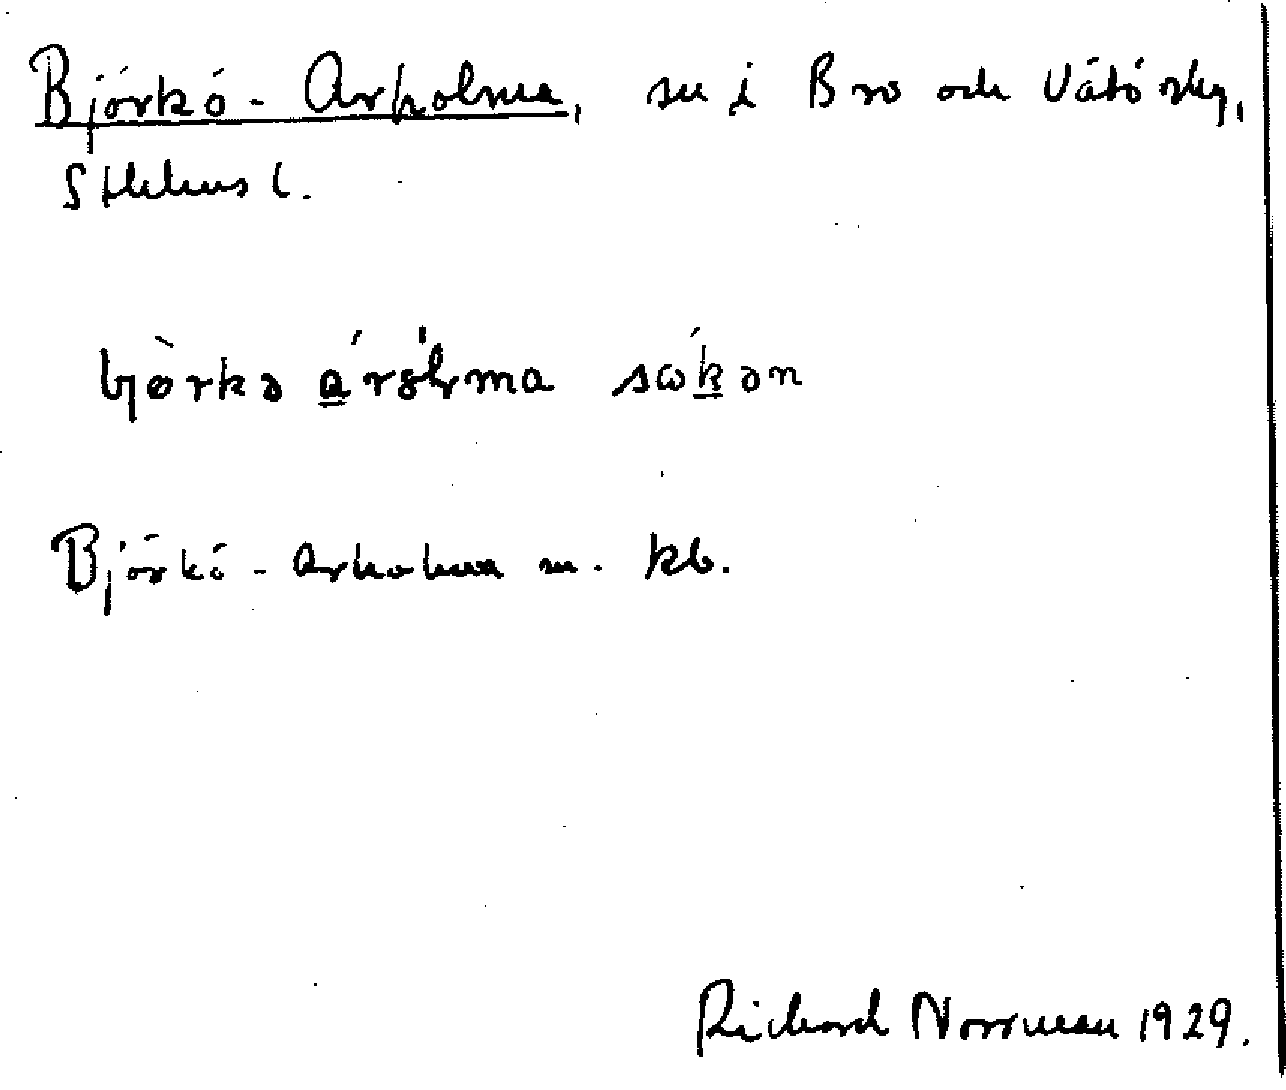 Björkö-Arholma, sn i Bro och Vätö skg,
Sthlms l.
bjò̀rkə á̲rólma sωk̲ən
Björkö-Arholma sn. kb.
Richard Norrman 1929.